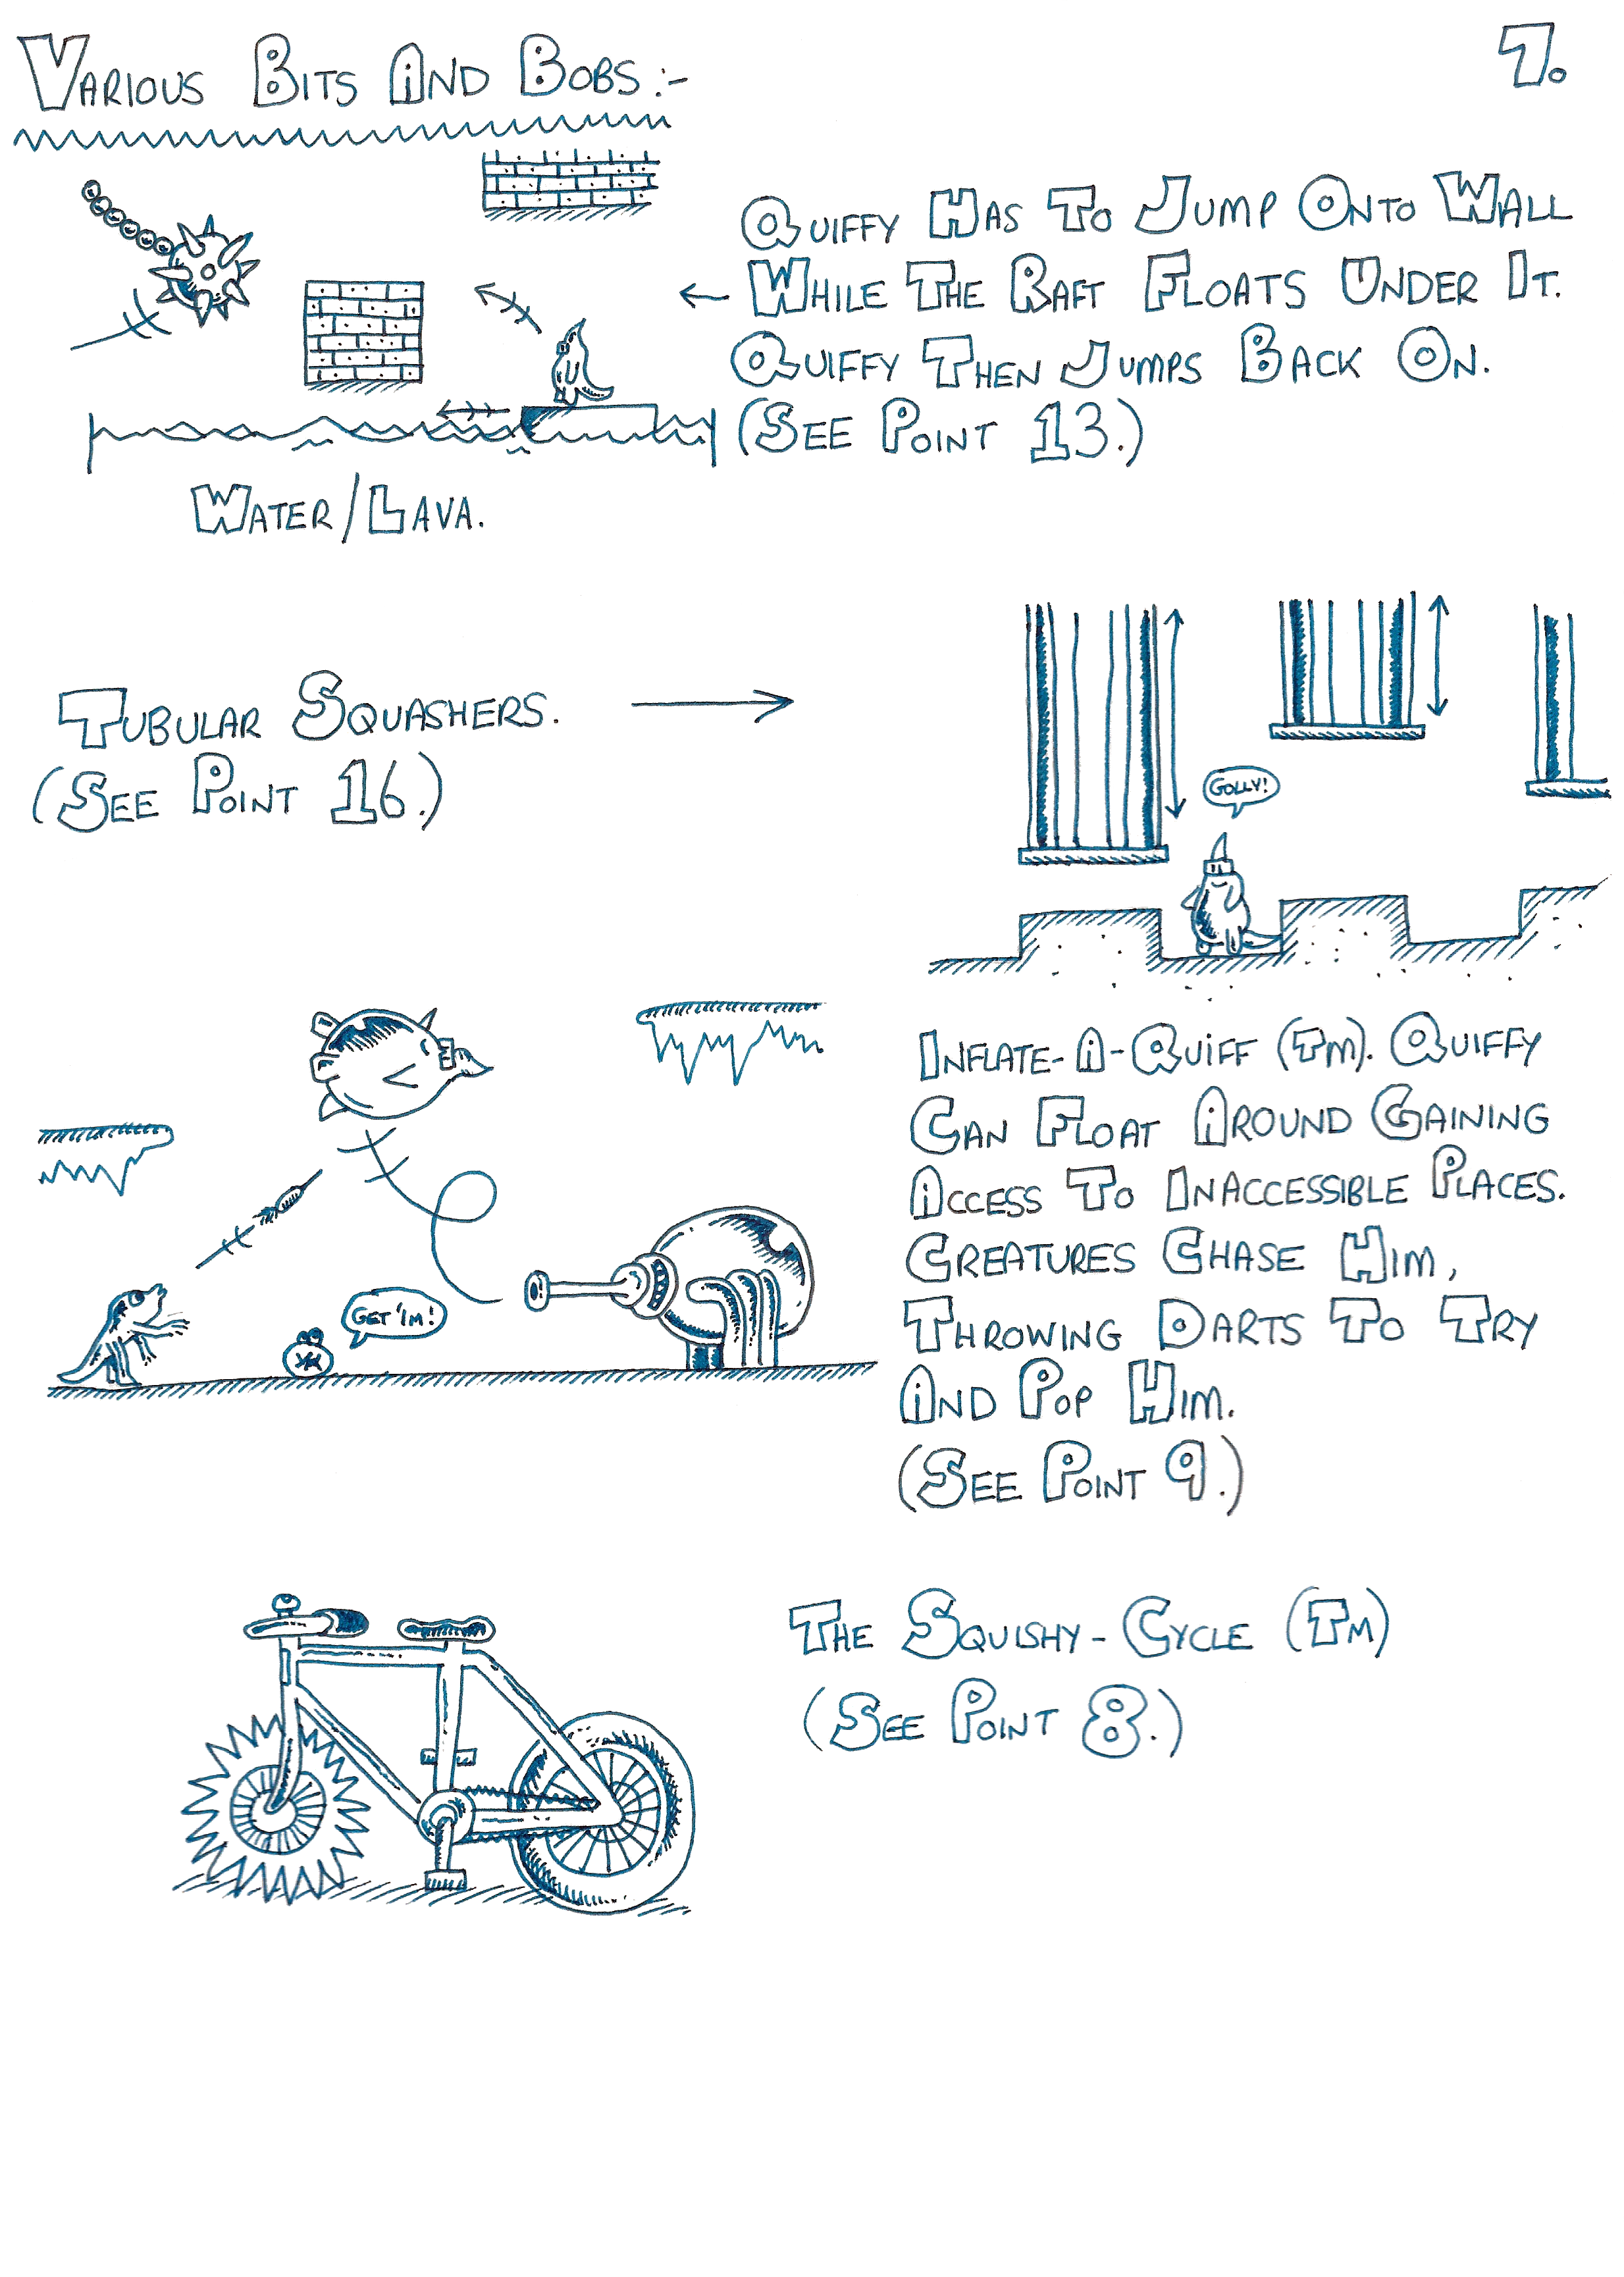 Various Bits And Bobs:-
7.
Quiffy Has To Jump Onto Wall
← While The Raft Floats Under It.
Quiffy Then Jumps Back On.
(See Point 13.)
Water/Lava.
Tubular Squashers.
(See Point 16.)
Golly!
Inflate-A-Quiff (TM). Quiffy
Can Float Around Gaining
Access To Inaccessible Places.
Creatures Chase Him,
Throwing Darts To Try
And Pop Him.
(See Point 9.)
Get 'Im!
The Squishy-Cycle (TM)
(See Point 8.)